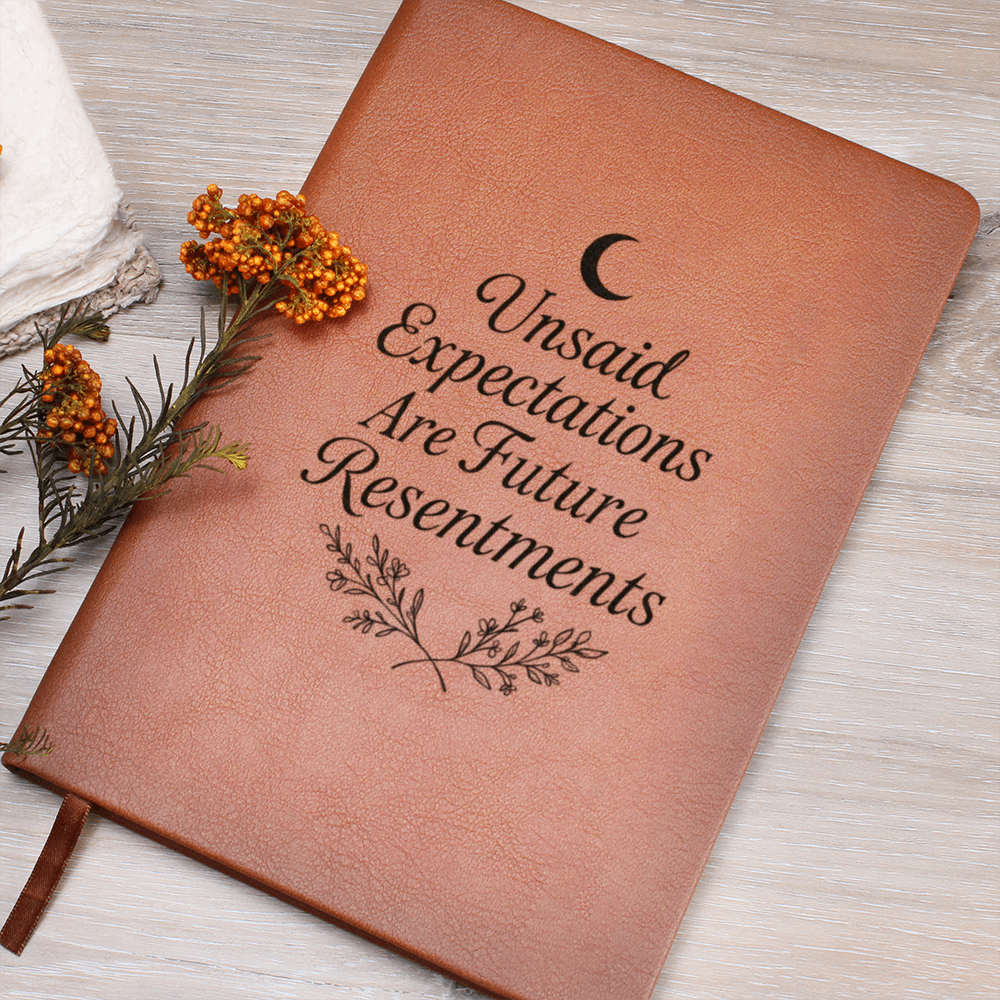 Unsaid
Expectations
Are Future
Resentments